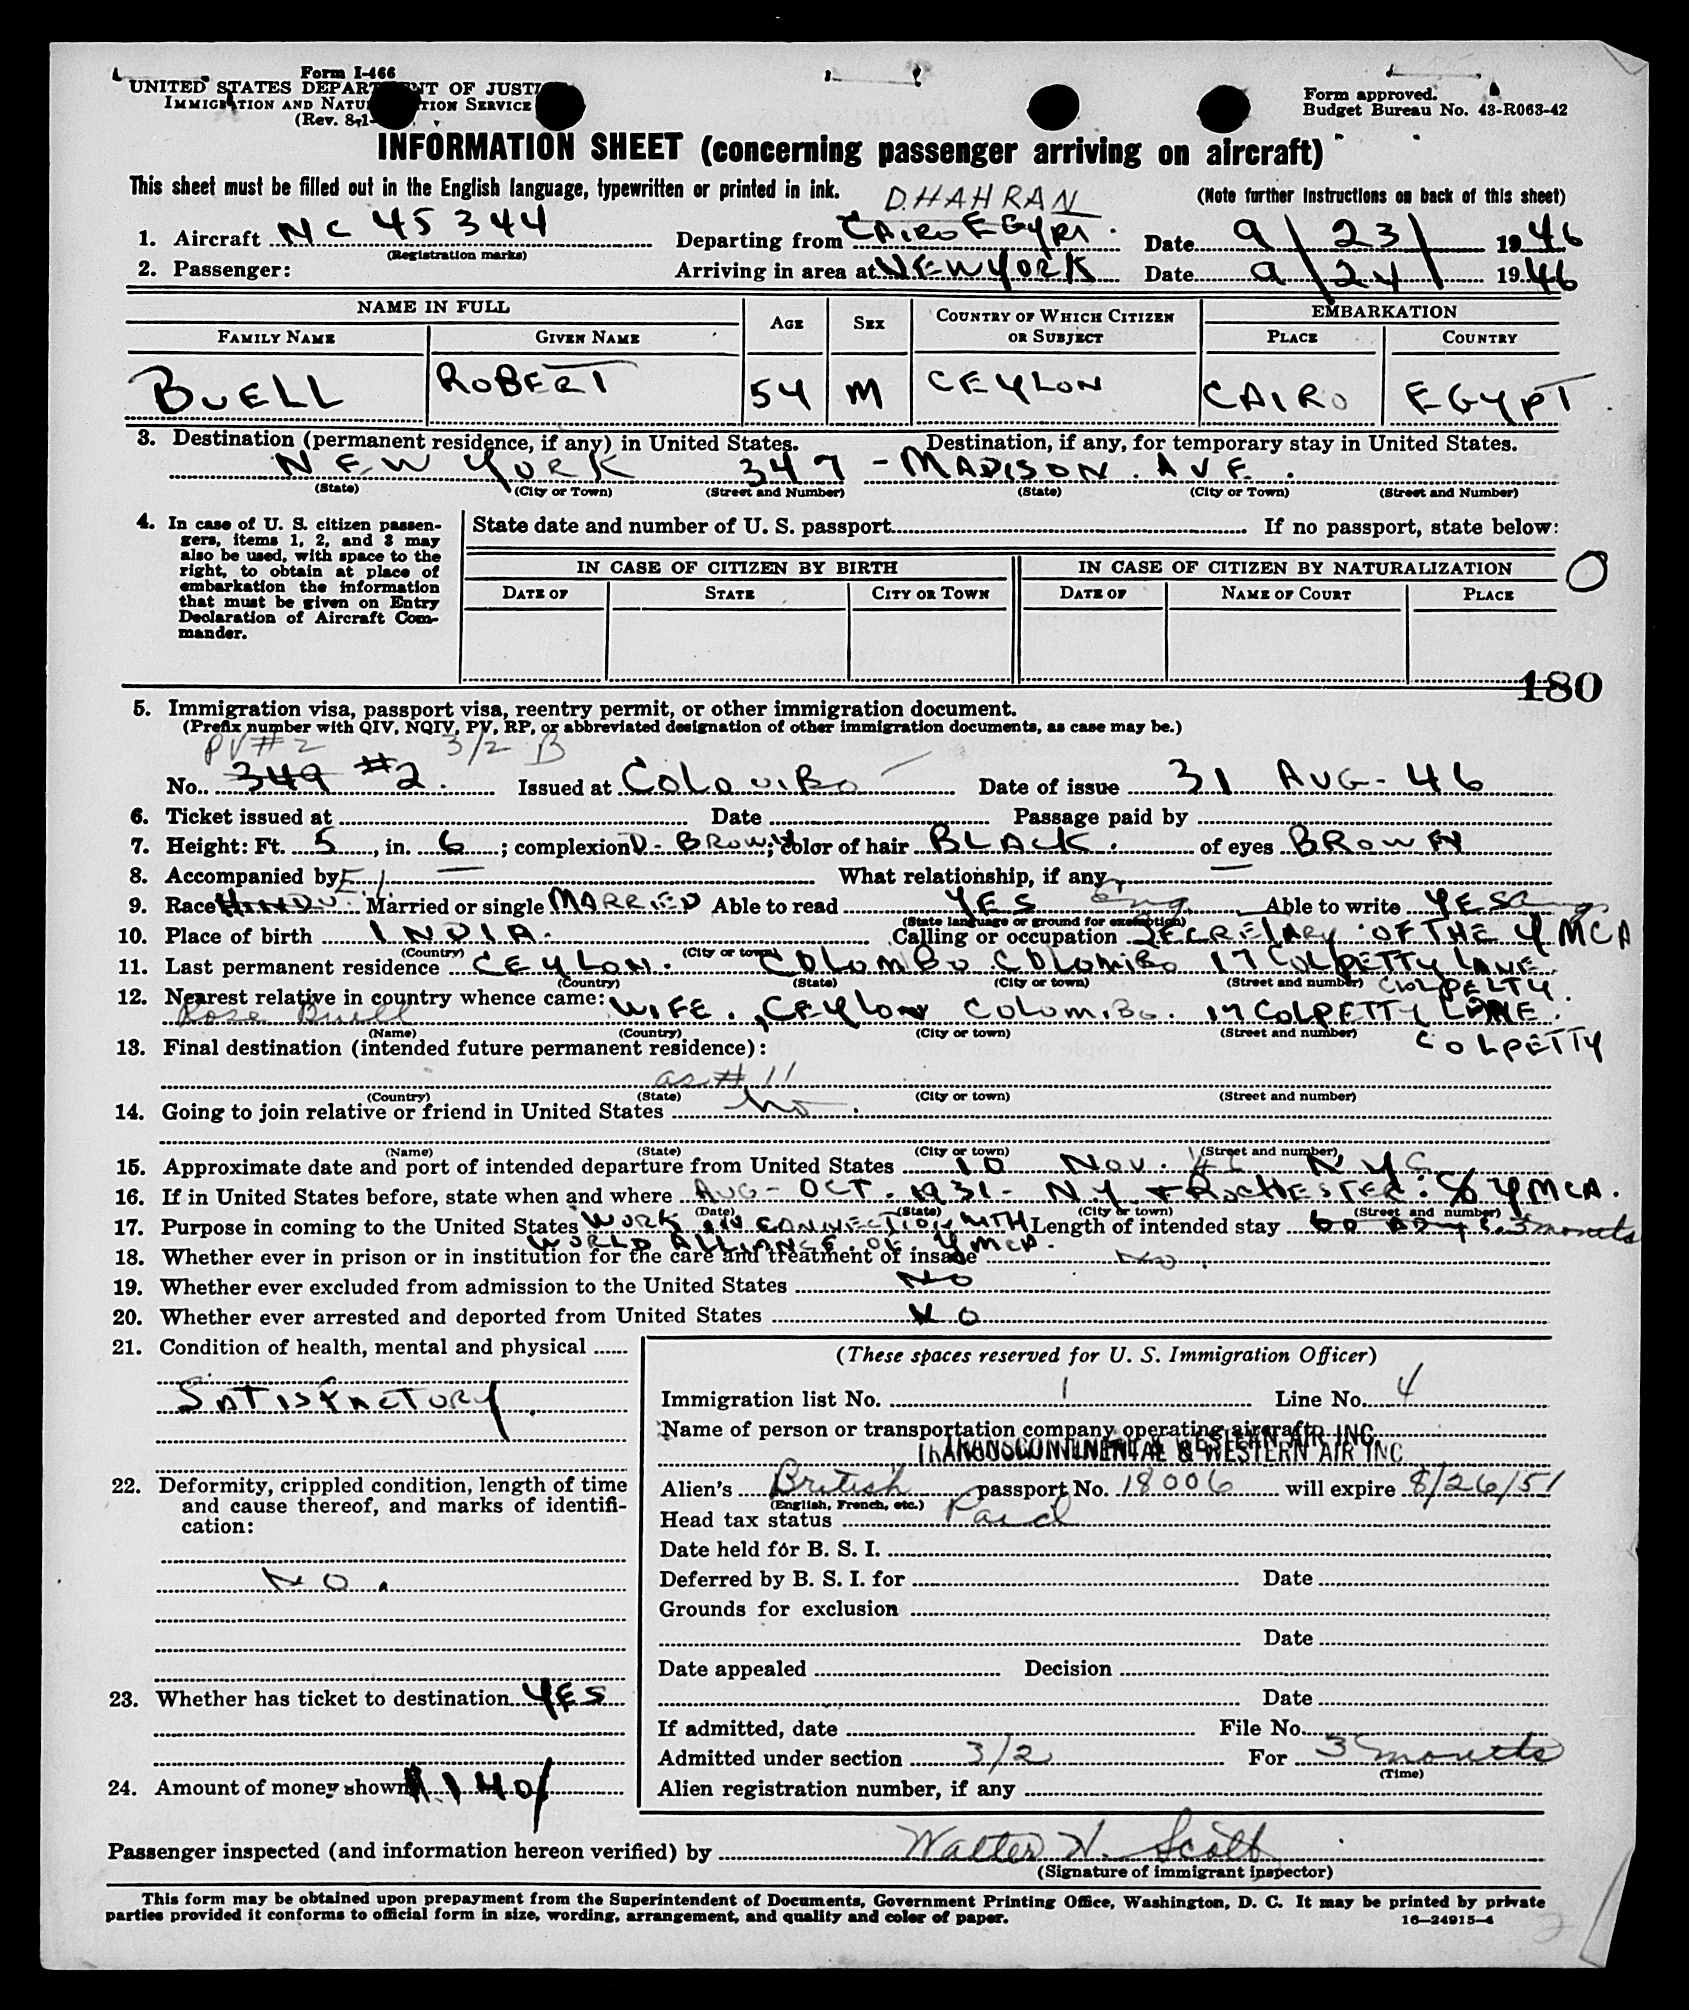 Form I-466
UNITED STATES DEPARTMENT OF JUSTICE
IMMIGRATION AND NATURALIZATION SERVICE
(Rev. 8-1-
Form approved.
Budget Bureau No. 43-R063-42
INFORMATION SHEET (concerning passenger arriving on aircraft)
This sheet must be filled out in the English language, typewritten or printed in ink.
(Note further instructions on back of this sheet)
DHAHRAN
1. Aircraft NC 45344 Departing from CAIRO EGYPT. Date 9/23/ 1946
(Registration marks)
2. Passenger: Arriving in area at NEW YORK Date 9/24/ 1946
NAME IN FULL AGE SEX COUNTRY OF WHICH CITIZEN OR SUBJECT EMBARKATION
FAMILY NAME GIVEN NAME PLACE COUNTRY
BUELL ROBERT 54 M CEYLON CAIRO EGYPT
3. Destination (permanent residence, if any) in United States. Destination, if any, for temporary stay in United States.
NEW YORK 347 - MADISON. AVE.
(State) (City or Town) (Street and Number) (State) (City or Town) (Street and Number)
4. In case of U. S. citizen passengers, items 1, 2, and 3 may also be used, with space to the right, to obtain at place of embarkation the information that must be given on Entry Declaration of Aircraft Commander.
State date and number of U. S. passport If no passport, state below:
IN CASE OF CITIZEN BY BIRTH IN CASE OF CITIZEN BY NATURALIZATION
DATE OF STATE CITY OR TOWN DATE OF NAME OF COURT PLACE
0
180
5. Immigration visa, passport visa, reentry permit, or other immigration document.
(Prefix number with QIV, NQIV, PV, RP, or abbreviated designation of other immigration documents, as case may be.)
PV#2 3/2 B
No. 349 #2. Issued at COLOMBO Date of issue 31 AUG-46
6. Ticket issued at Date Passage paid by
7. Height: Ft. 5, in. 6; complexion D-BROWN; color of hair BLACK. of eyes BROWN
8. Accompanied by — What relationship, if any —
E.I.
9. Race HINDU Married or single MARRIED Able to read YES Eng Able to write YES Eng
(State language or ground for exemption)
10. Place of birth INDIA. Calling or occupation SECRETARY OF THE YMCA
(Country) (City or town)
11. Last permanent residence CEYLON. COLOMBO COLOMBO 17 COLPETTY LANE.
(Country) (State) (City or town) (Street and number) COLPETTY.
12. Nearest relative in country whence came:
Rose Buell WIFE. CEYLON COLOMBO. 17 COLPETTY LANE.
(Name) (Country) (City or town) (Street and number) COLPETTY
13. Final destination (intended future permanent residence):
as # 11
(Country) (State) (City or town) (Street and number)
14. Going to join relative or friend in United States no.
(Name) (State) (City or town) (Street and number)
15. Approximate date and port of intended departure from United States 10 NOV. 46 NYC
16. If in United States before, state when and where AUG-OCT. 1931- NY + ROCHESTER. c/o YMCA.
(Date) (State) (City or town) (Street and number)
17. Purpose in coming to the United States WORK IN CONNECTION WITH Length of intended stay 60 DAYS. 3 months
WORLD ALLIANCE OF YMCA.
18. Whether ever in prison or in institution for the care and treatment of insane No.
19. Whether ever excluded from admission to the United States NO
20. Whether ever arrested and deported from United States NO
21. Condition of health, mental and physical
SATISFACTORY.
22. Deformity, crippled condition, length of time and cause thereof, and marks of identification:
NO.
23. Whether has ticket to destination YES
24. Amount of money shown $140/
(These spaces reserved for U. S. Immigration Officer)
Immigration list No. 1 Line No. 4
Name of person or transportation company operating aircraft
TRANSCONTINENTAL & WESTERN AIR INC.
TRANSCONTINENTAL & WESTERN AIR INC
Alien's British passport No. 18006 will expire 8/26/51
(English, French, etc.)
Head tax status Paid
Date held for B. S. I.
Deferred by B. S. I. for Date
Grounds for exclusion
Date
Date appealed Decision
Date
If admitted, date File No.
Admitted under section 3/2 For 3 months
(Time)
Alien registration number, if any
Passenger inspected (and information hereon verified) by Walter W. Scott
(Signature of immigrant inspector)
This form may be obtained upon prepayment from the Superintendent of Documents, Government Printing Office, Washington, D. C. It may be printed by private
parties provided it conforms to official form in size, wording, arrangement, and quality and color of paper.
16—24915-4